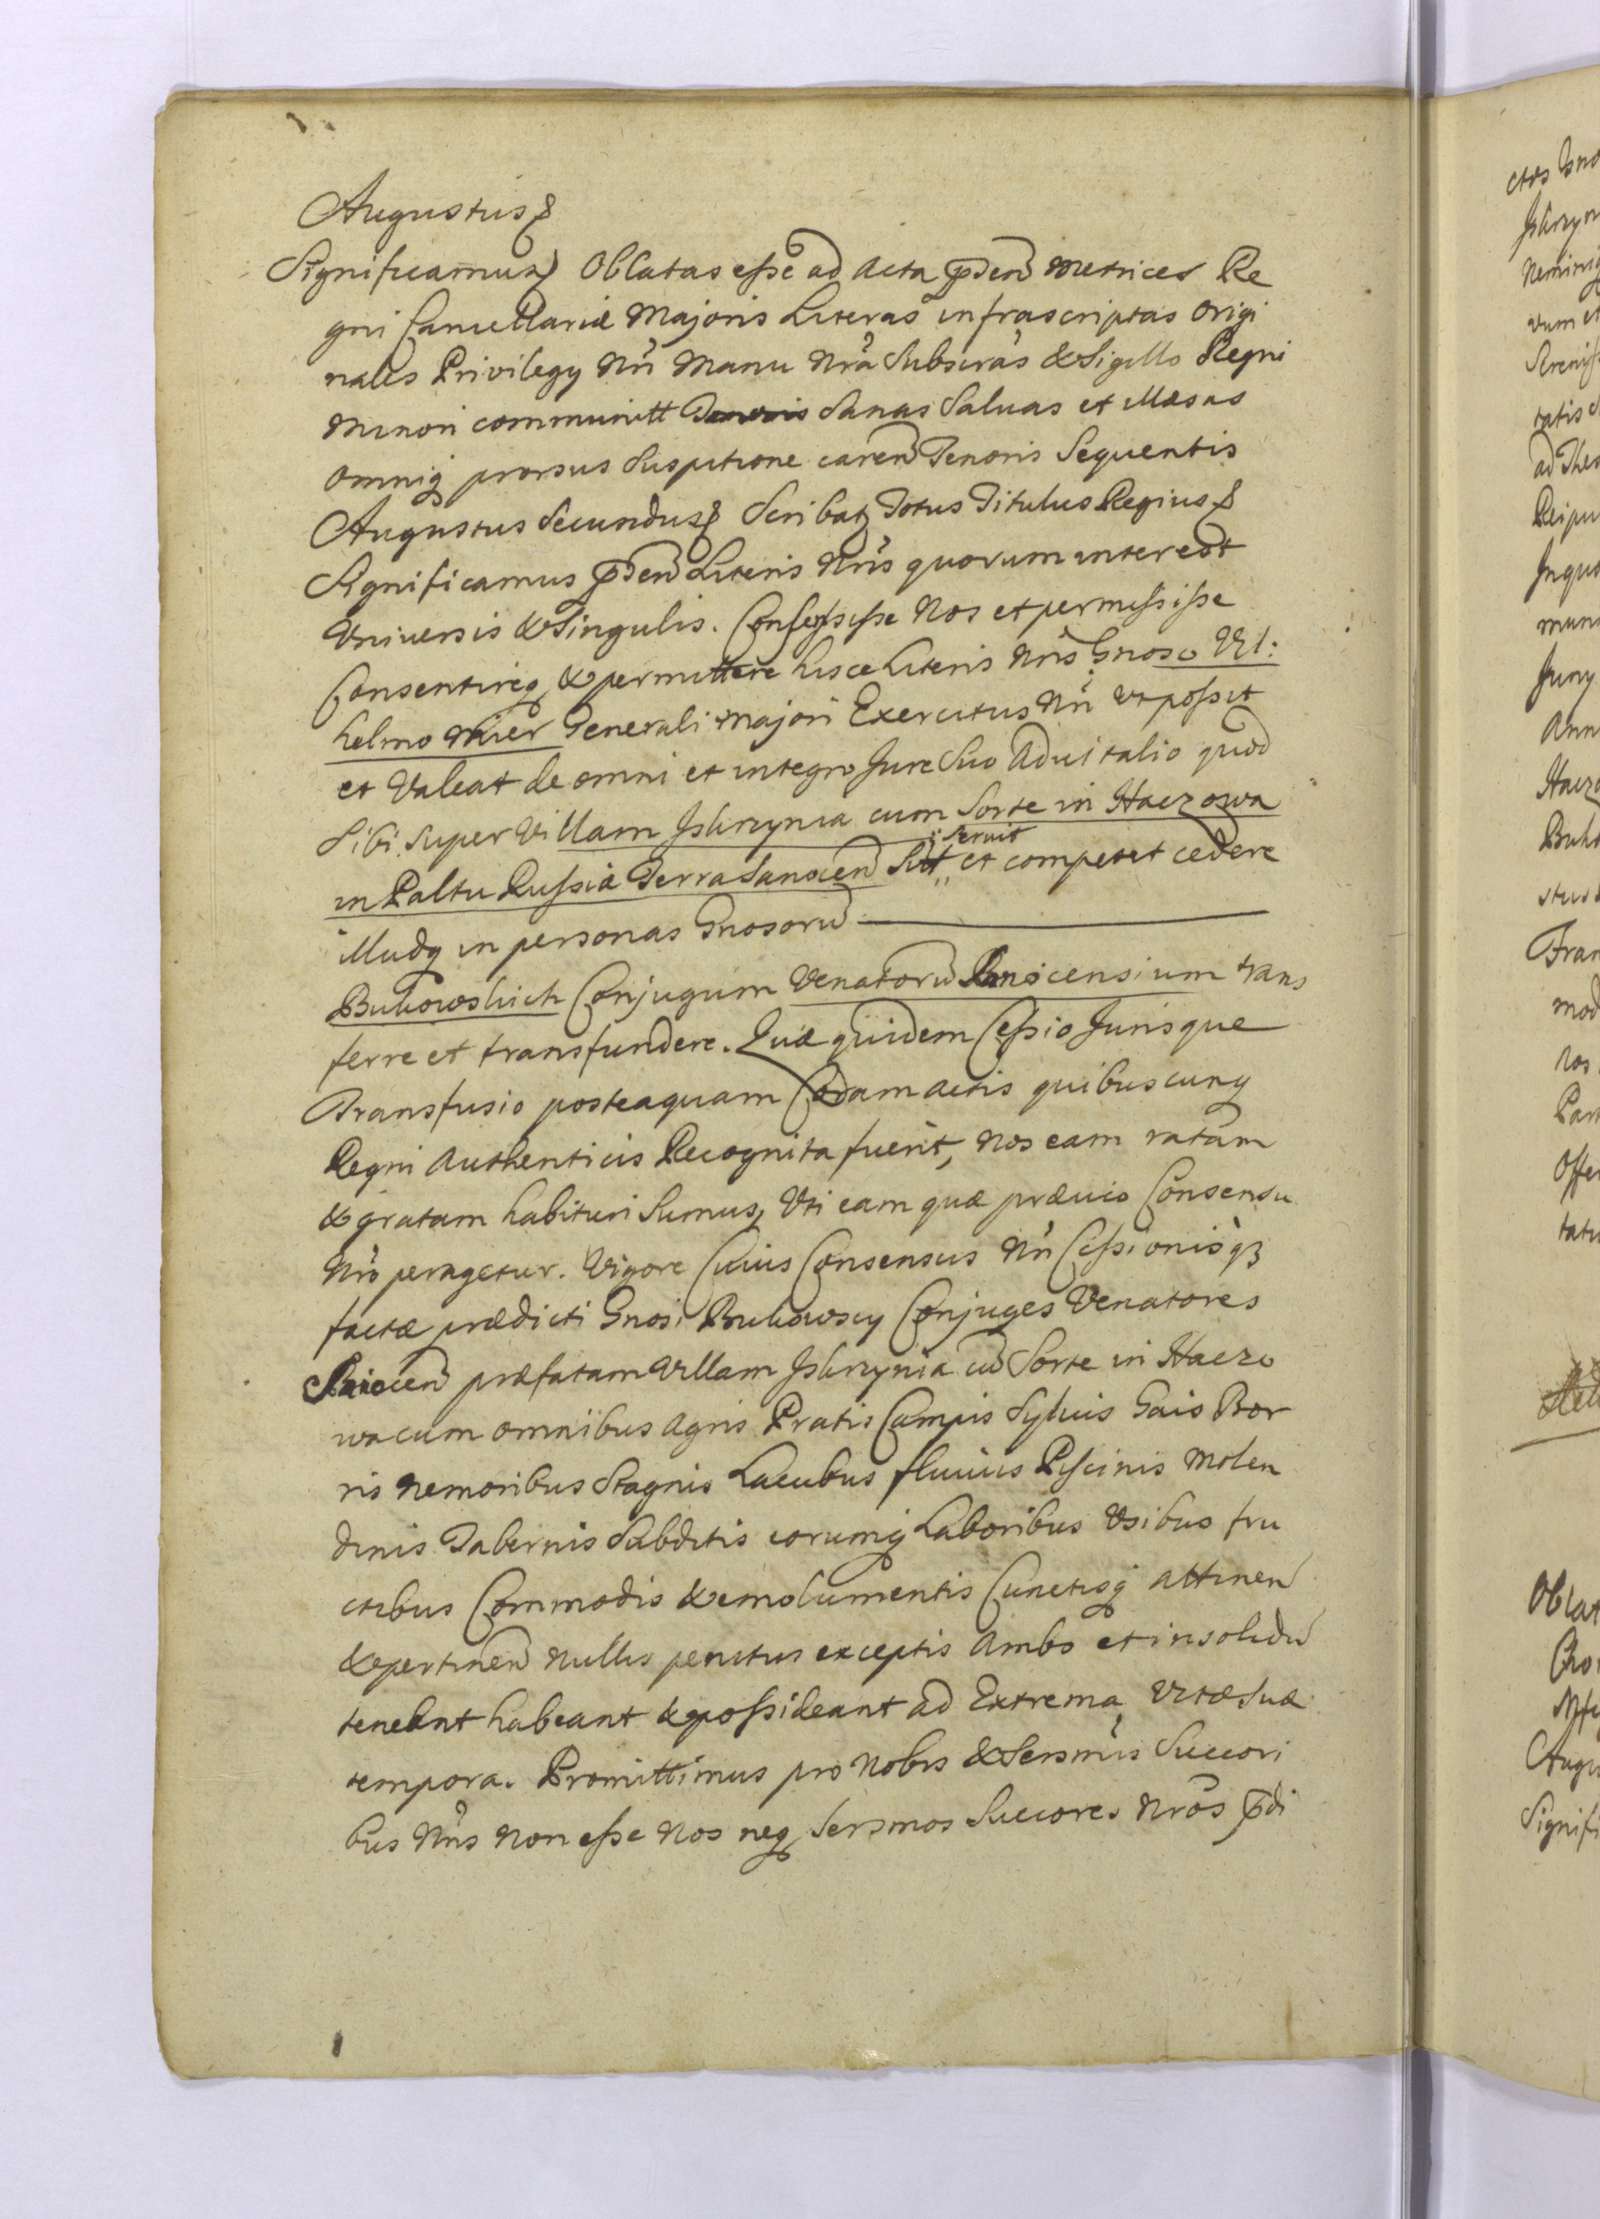 Augustus &
Significamus & Oblatas esse ad Acta pnten Metrices Re
gni Cancellariæ Majoris Literas infrascriptas Origi
nales Privilegy Nri Manu Nra Subscras & Sigillo Regni
Minori communitt Sanas Saluas et illæsas
omniq prorsus suspitione caren Tenoris Sequentis
Augustus Secundus & Scribatz Totus Titulus Regius &
Significamus pnten Literis Nris quorum interest
Vniuersis & Singulis. Consensisse Nos et permisisse
Consentireq & permittere hisce Literis Nris Gnoso Vil:
helmo Mier Generali Majori Exercitus Nri vt possit
et Valeat de omni et integro Jure Suo Aduitalio quod
Sibi Super Villam Iskrzynia cum Sorte in Haczowa
in Paltu Russiæ Terra Sanocen seruit et competet cedere
illudq in personas Gnosoru
Bukowskich Conjugum Venatoru Sanocensium trans
ferre et transfundere. Quæ quidem Cessio Jurisque
Transfusio posteaquam Coram actis quibuscunq
Regni Authenticis Recognita fuerit, nos eam ratam
& gratam habituri Sumus, Vti eam quæ præuio Consensu
Nro peragetur. Vigore Cuius Consensus Nri Cessionisqz
factæ prædicti Gnosi Bukowscy Conjuges Venatores
Sanocen præfatam Villam Iskrzynia cu Sorte in Haczo
wa cum omnibus Agris Pratis Campis Syluis Gais Bor
ris Nemoribus Stagnis Lacubus fluuiis Piscinis Molen
dinis Tabernis Subditis eorumq Laboribus Vsibus fru
ctibus Commodis & emolumentis Cunctisq attinen
& pertinen nullis penitus exceptis ambo et insolidu
teneant habeant & possideant ad Extrema Vitæ Suæ
tempora. Promittimus pro Nobis & Sersmis Succori
bus Nris Non esse Nos neq Sersmos Succores Nros pdi